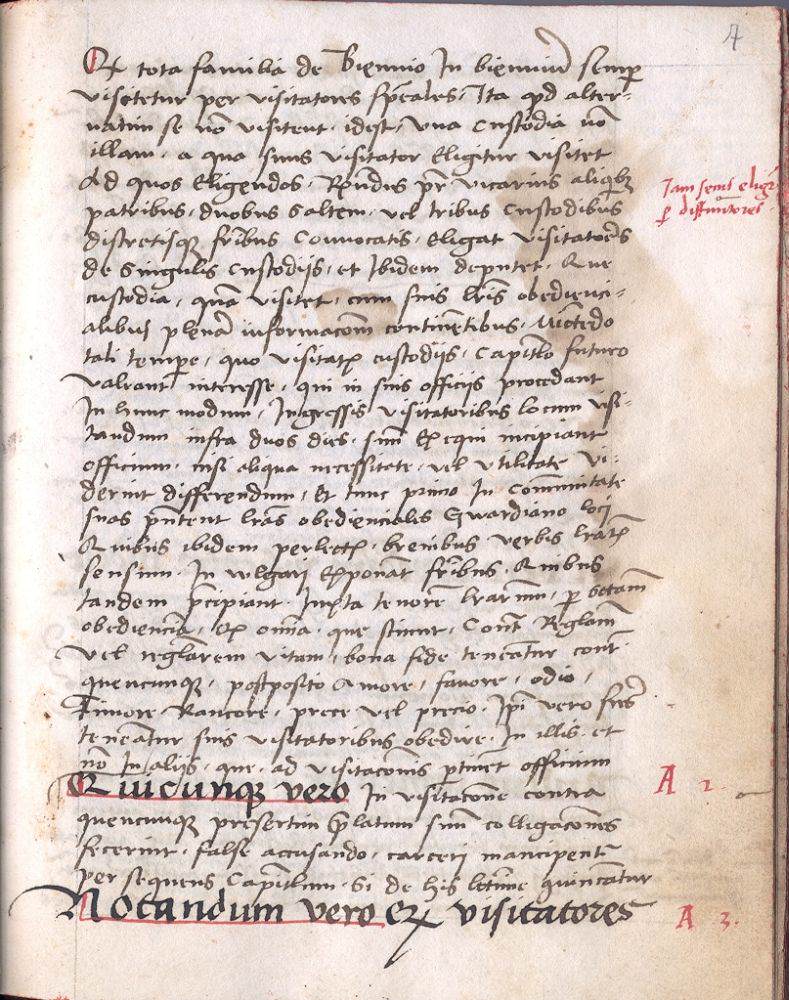 4
Et tota familia de Biennio In bienniu͞ semp̱
visitetur per visitatores sp̄eales. Ita qd alter⸗
natim se no͞ visitent. idest, vna Custodia no͞
illam, a qua suus visitator Eligitur visitet
Ad quos Eligendos, Rͤndus pr̄ vicarius aliqbȝ
patribus, duobus saltem, vel tribus Custodibus
discretisqȝ fr̄ibus Conuocatis, Eligat visitatores
de Singulis Custodijs, et Ibidem deputet, Que
custodia, qua͞ visitet, cum suis lr̄is obedienci⸗
alibus plena͞ informaco͞m contine͞tibus,
tali tempe, quo visitatꝝ custodijs, Capitl̄o futuro
valeant interesse, qui in suis officijs procedant
In hunc modum, Ingressis visitatoribus locum visi⸗
tandum infra duos dies, suu͞ Exequi incipiant
officium, nisi aliqua necessitate, vel vtilitate vi⸗
derint differendum, Et tunc primo In Com͞unitate
suas pn̄tent lr̄as obediencialis Gwardiano loci
Quibus ibidem perlectꝭ, breuibus verbis lr̄aꝝ
sensum, In wlgari Expona͞t fr̄ibus, Quibus
tandem p̄cipiant, Iuxta tenore͞ lr̄arum, ꝑ sc͞tam
obediencia͞, Ex om͞ia, que sciunt, Cont͞ Regl̄am
vel regl̄arem vitam, bona fide tenea͞tur cont͞
quencunqȝ, postposito Amore, fauore, odio,
Timore Rancore, prece vel precio, Ipi͞ vero fr̄es
tenea͞tur suis visitatoribus obedire, In illis et
no͞ In alijs, que, ad visitaco͞nis ꝑtinet officium
Quicunqȝ vero In visitaco͞ne contra
quencunqȝ presertim p̄latum suu͞ colligaco͞nes
fecerint, false accusando, carceri mancipent᷑
per sequens Capitl̄um, Si de his l͞time conuincatur
Notandum vero Ex visitatores
Iam semp̱ eligu͞t᷑
ꝑ diffinitores
A 2.
A 3.